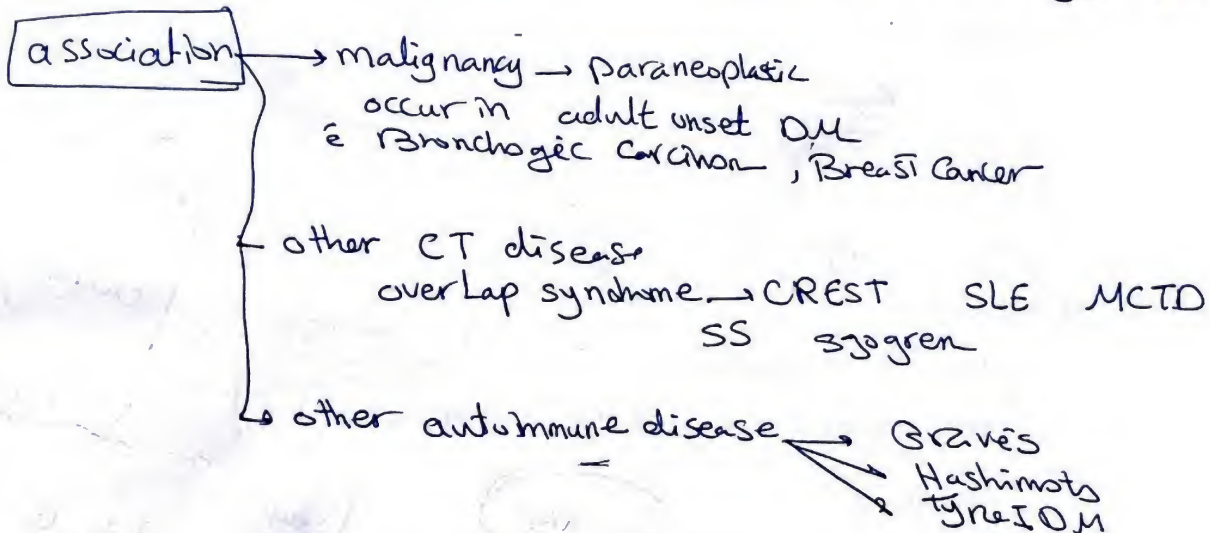 association → malignancy → paraneoplastic
occur in adult unset DM
ē Bronchogéc Carcinon, Breast Cancer
other CT disease
overlap syndrome → CREST SLE MCTD
SS szogren
other autoimmune disease → Graves
Hashimoto
Type I DM